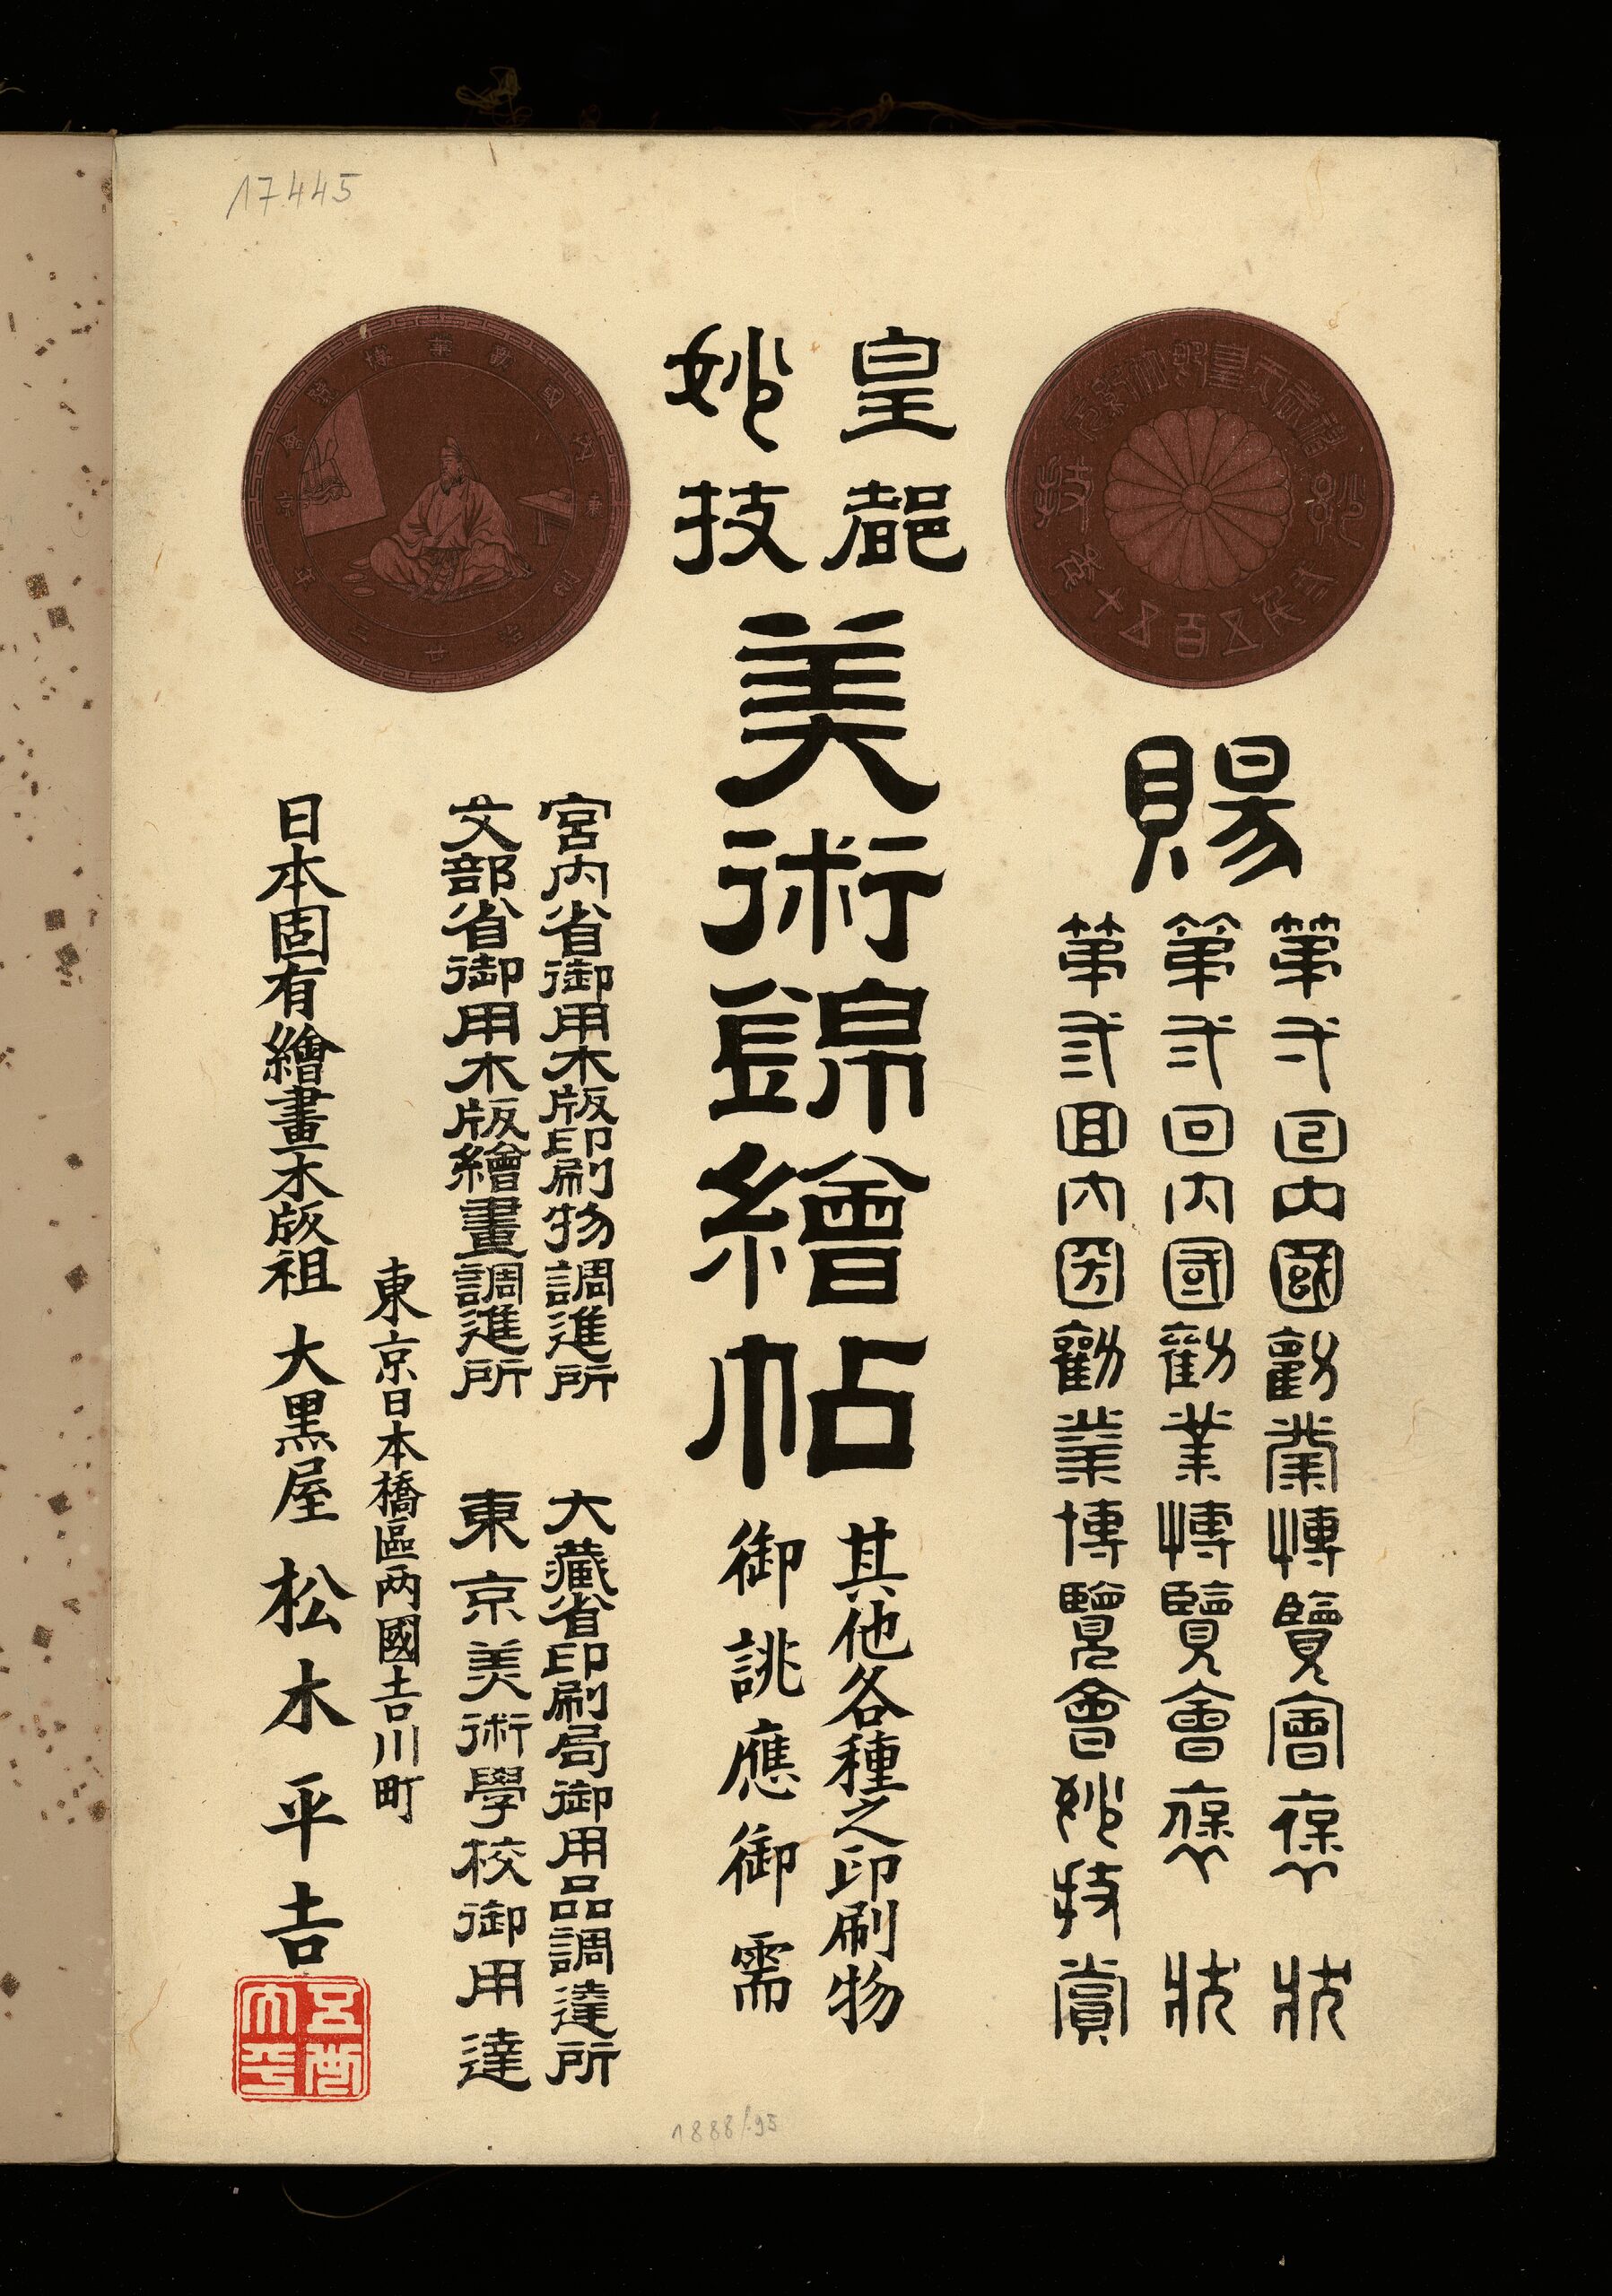 17445
賜
第弐回内國勸業博覽會褒状
第弐回内國勸業博覽會褒状
第弎回内國勸業博覽會妙技賞
皇都
妙技
美術錦繪帖
其他各種之印刷物
御誂應御需
宮内省御用木版印刷物調進所
文部省御用木版繪畫調進所
大藏省印刷局御用品調達所
東京美術學校御用達
東京日本橋區两國吉川町
日本固有繪畫木版祖 大黒屋 松木平吉
1888/95